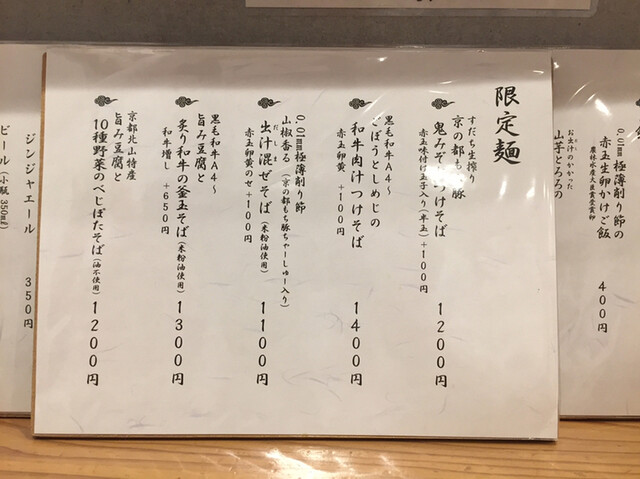 0.01mm極薄削り節の
赤玉生卵かけご飯
農林水産大臣賞受賞卵
400円
お出汁のかかった
山芋とろろの
限定麺
すだち生搾り
京の都もち豚
鬼みぞれつけそば
1200円
赤玉味付け玉子入り(半玉)+100円
黒毛和牛A4〜
ごぼうとしめじの
和牛肉汁つけそば
1400円
赤玉卵黄 +100円
0.01mm極薄削り節
山椒香る(京の都もち豚ちゃーしゅー入り)
だしま
出汁混ぜそば(米粉油使用)
1100円
赤玉卵黄のせ+100円
黒毛和牛A4〜
旨み豆腐と
炙り和牛の釜玉そば(米粉油使用)
1300円
和牛増し +650円
京都北山特産
旨み豆腐と
10種野菜のべじぽたそば(油不使用)
1200円
ジンジャエール
350円
ビール(小瓶 350ml)